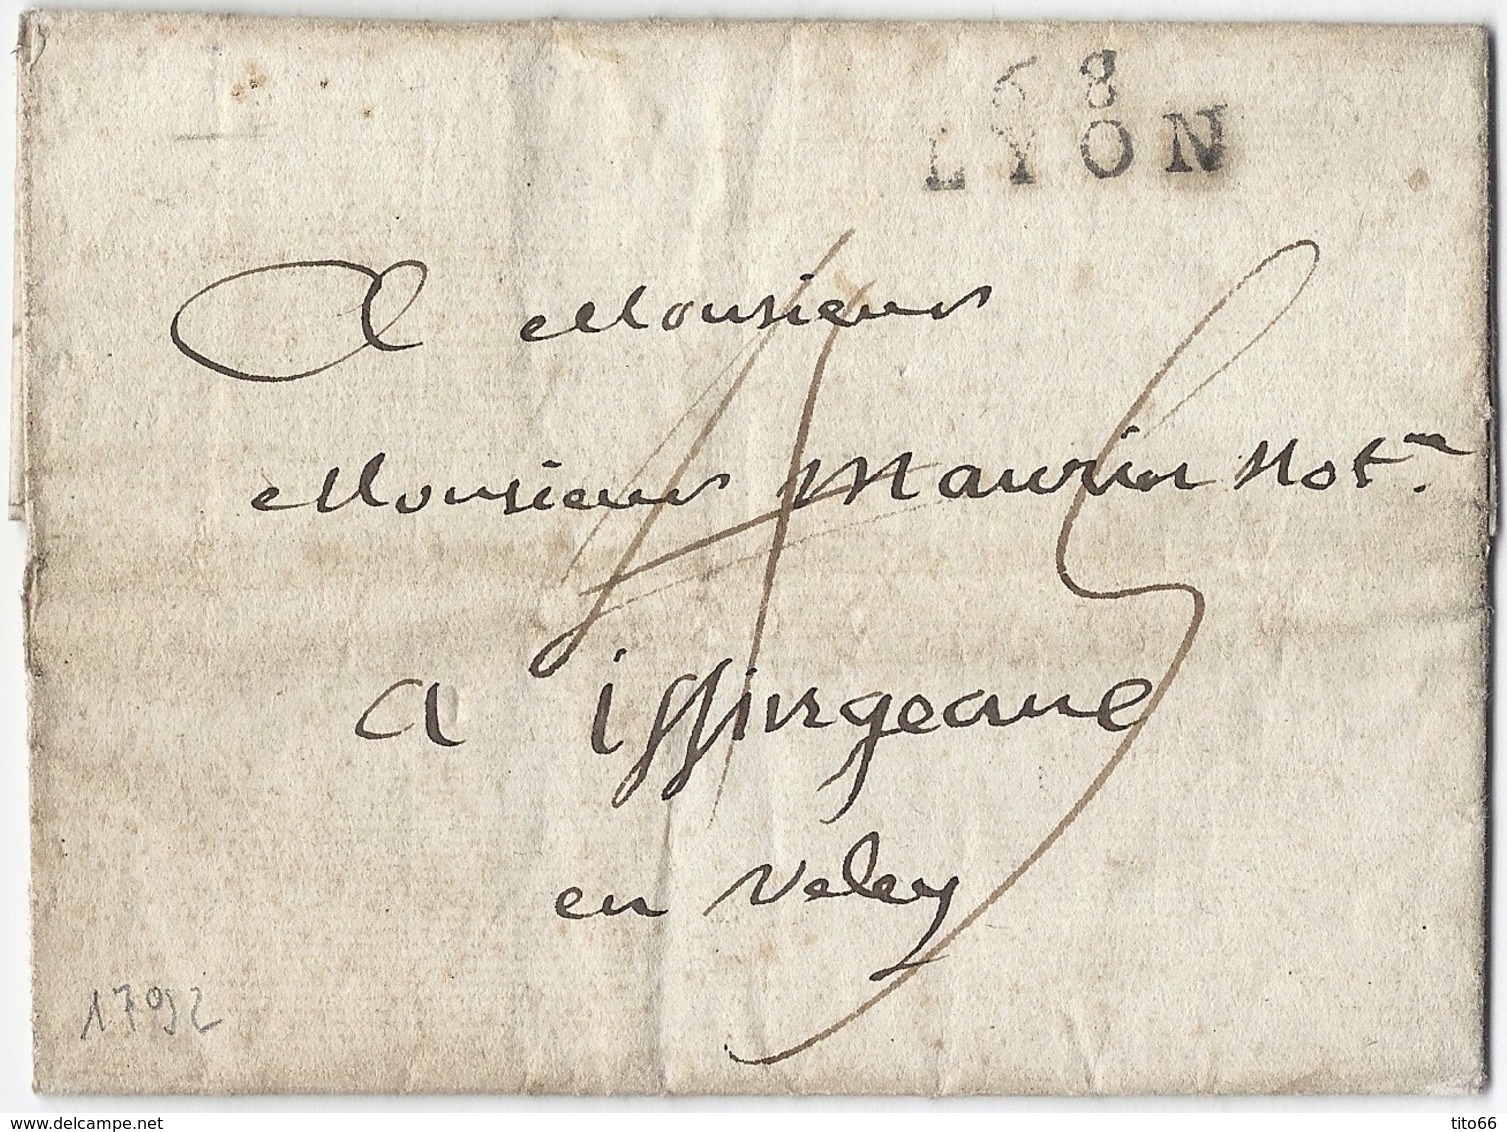 68
LYON
A Monsieur
Monsieur Maurin Not.re
A issingeaux
en veley
45
1792
www.delcampe.net
tito66